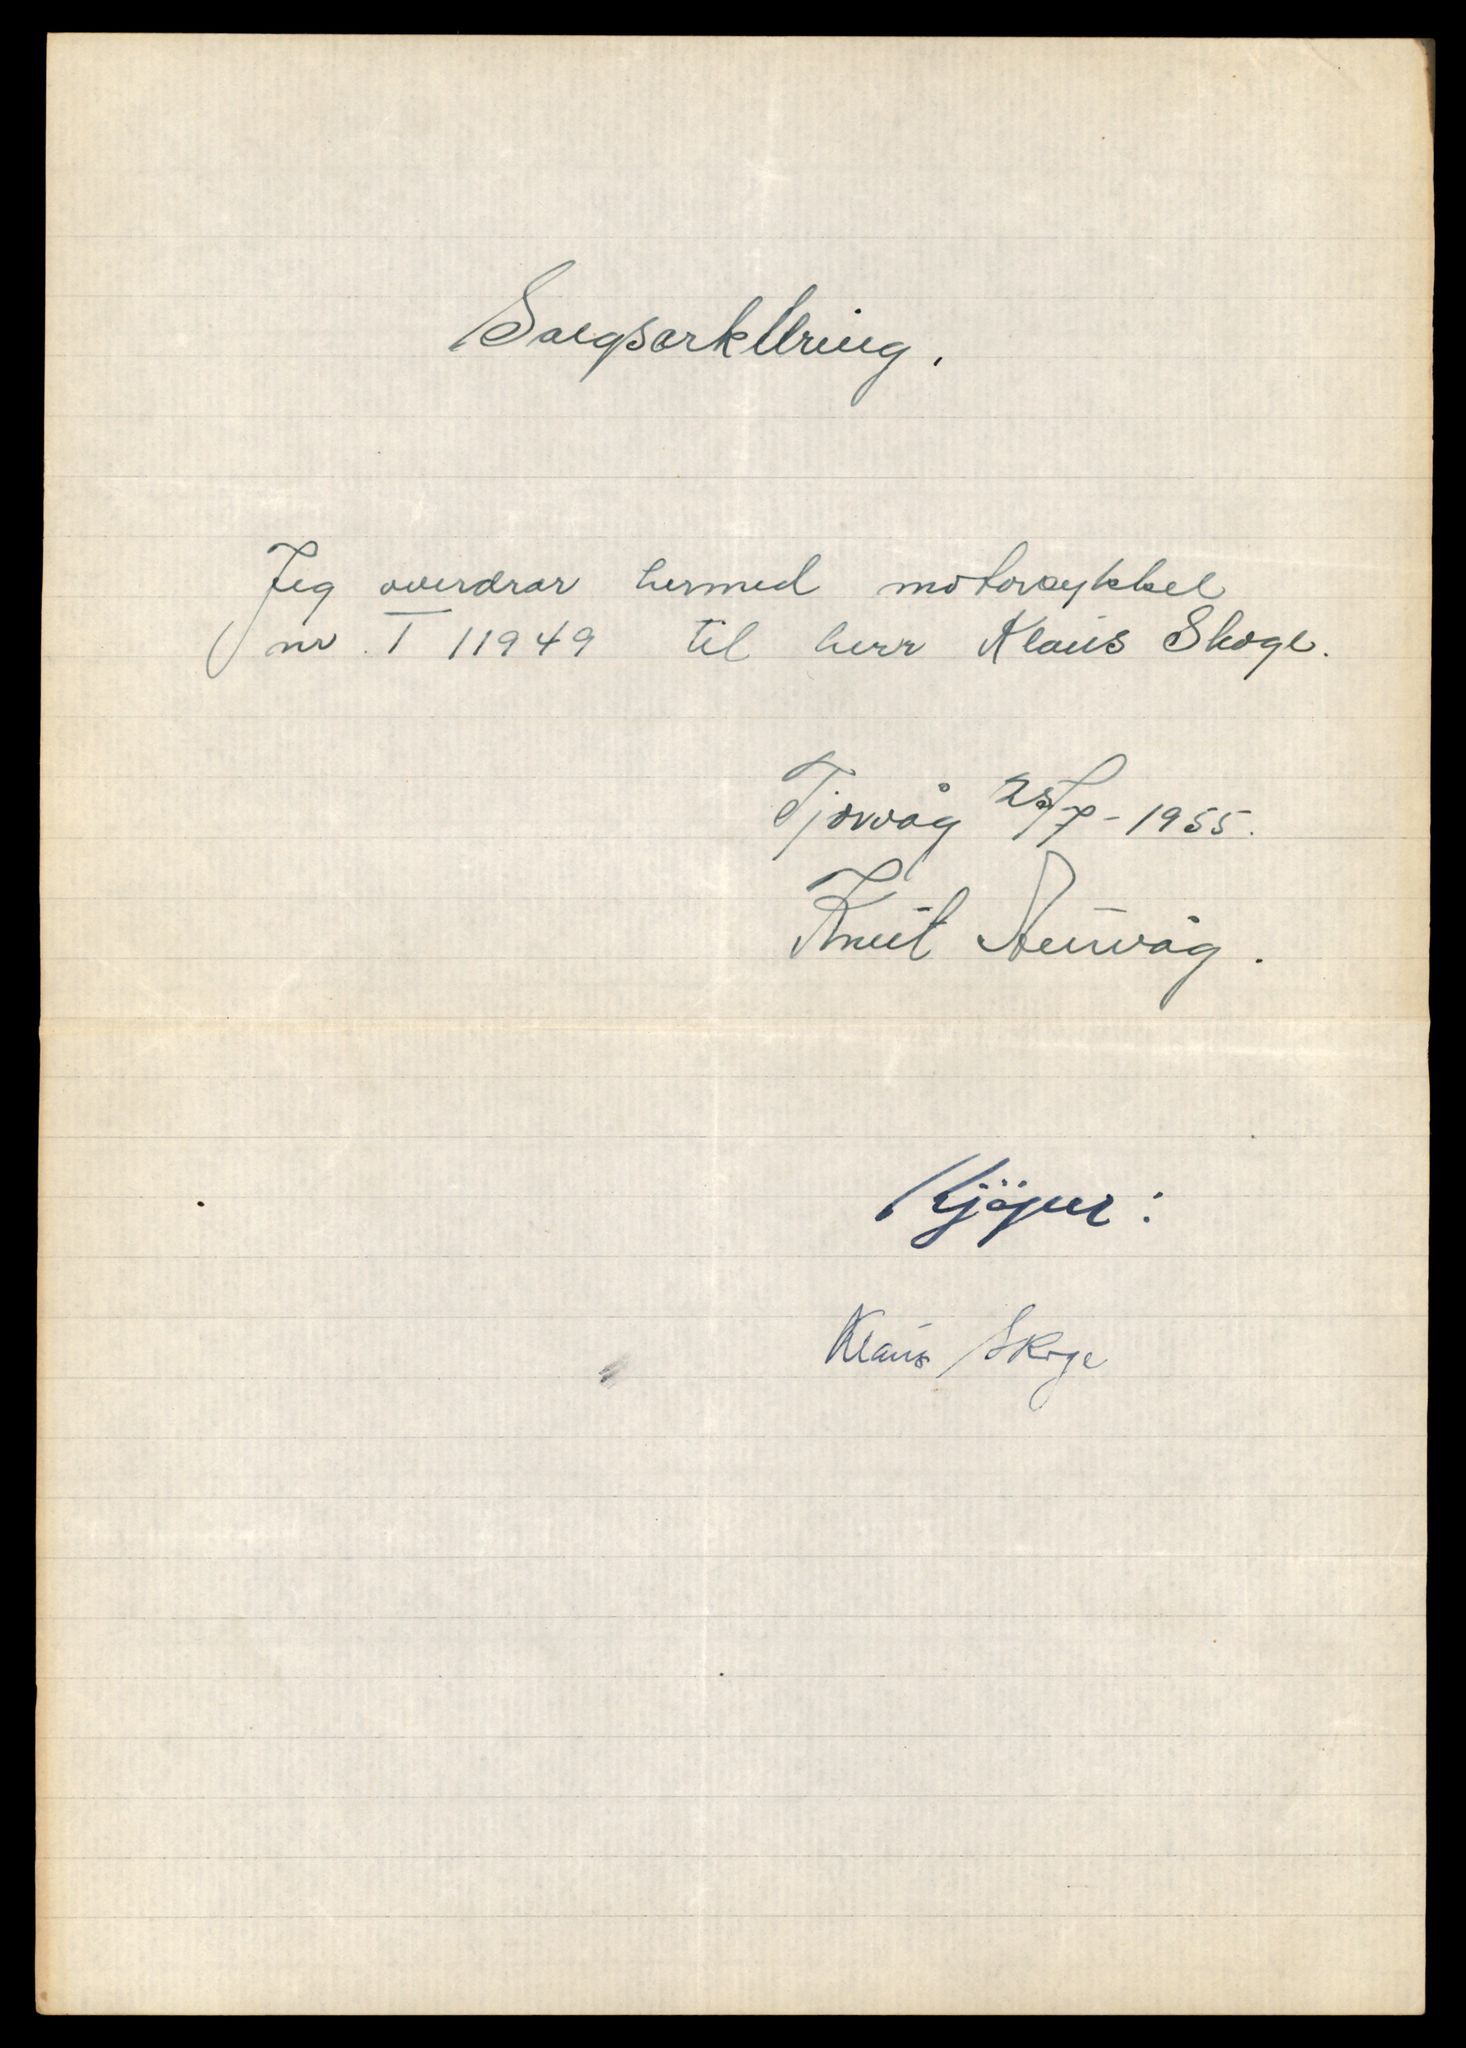 Salgserklering.
Jeg overdrar hermed motorsykkel
nr. T 11949 til herr Klaus Skoge.
Tjorvåg 25/7-1955.
Knut Aurvåg.
Kjöper:
Klaus Skoge